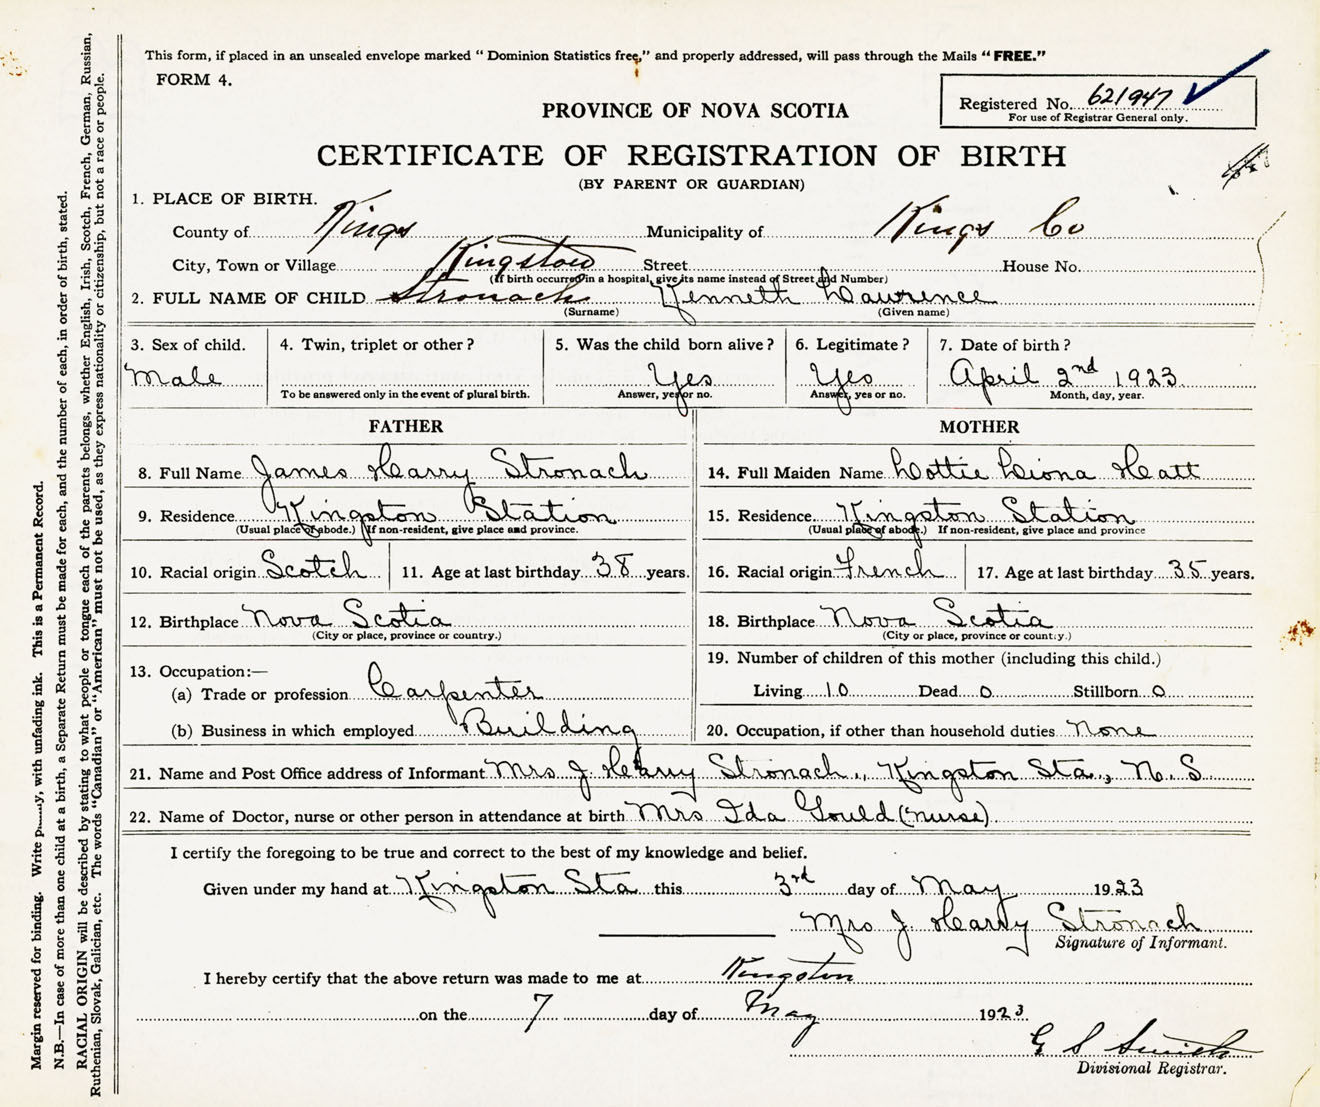 This form, if placed in an unsealed envelope marked "Dominion Statistics free," and properly addressed, will pass through the Mails "FREE."
FORM 4.
Registered No. 621947
For use of Registrar General only.
PROVINCE OF NOVA SCOTIA
CERTIFICATE OF REGISTRATION OF BIRTH
(BY PARENT OR GUARDIAN)
1. PLACE OF BIRTH.
County of Kings Municipality of Kings Co
City, Town or Village Kingston Street House No.
(If birth occurred in a hospital, give its name instead of Street and Number)
2. FULL NAME OF CHILD Stronach Kenneth Lawrence
(Surname) (Given name)
3. Sex of child. 4. Twin, triplet or other? 5. Was the child born alive? 6. Legitimate? 7. Date of birth?
Male Yes Yes April 2nd 1923
To be answered only in the event of plural birth. Answer, yes or no. Answer, yes or no. Month, day, year.
FATHER MOTHER
8. Full Name James Harry Stronach 14. Full Maiden Name Lottie Liona Hatt
9. Residence Kingston Station 15. Residence Kingston Station
(Usual place of abode.) If non-resident, give place and province. (Usual place of abode.) If non-resident, give place and province
10. Racial origin Scotch 11. Age at last birthday 38 years. 16. Racial origin French 17. Age at last birthday 35 years.
12. Birthplace Nova Scotia 18. Birthplace Nova Scotia
(City or place, province or country.) (City or place, province or country.)
13. Occupation:— 19. Number of children of this mother (including this child.)
(a) Trade or profession Carpenter Living 10 Dead 0 Stillborn 0
(b) Business in which employed Building 20. Occupation, if other than household duties None
21. Name and Post Office address of Informant Mrs J. Harry Stronach., Kingston Sta., N. S.
22. Name of Doctor, nurse or other person in attendance at birth Mrs Ida Gould (nurse)
I certify the foregoing to be true and correct to the best of my knowledge and belief.
Given under my hand at Kingston Sta this 3rd day of May 1923
Mrs J. Harry Stronach
Signature of Informant.
I hereby certify that the above return was made to me at Kingston
on the 7 day of May 1923
G S Smith
Divisional Registrar.
Margin reserved for binding. Write with unfading ink. This is a Permanent Record.
N.B.—In case of more than one child at a birth, a Separate Return must be made for each, and the number of each, in order of birth, stated.
RACIAL ORIGIN will be described by stating to what people or tongue each of the parents belongs, whether English, Irish, Scotch, French, German, Russian,
Ruthenian, Slovak, Galician, etc. The words "Canadian" or "American" must not be used, as they express nationality or citizenship, but not a race or people.